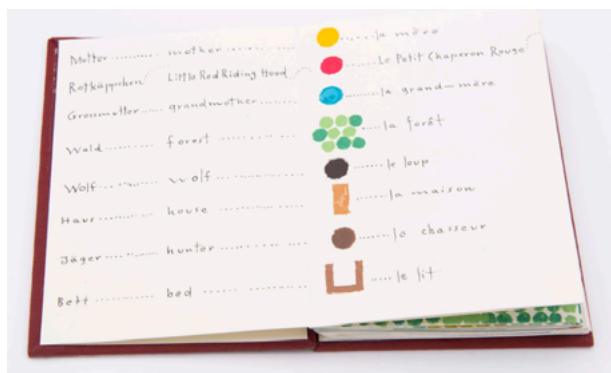 Mutter .......... mother .......... la mère
Rotkäppchen Little Red Riding Hood ..... Le Petit Chaperon Rouge
Grossmutter ..... grandmother .......... la grand-mère
Wald .......... forest .......... la forêt
Wolf .......... wolf .......... le loup
Haus .......... house .......... la maison
Jäger .......... hunter .......... le chasseur
Bett .......... bed .......... le lit